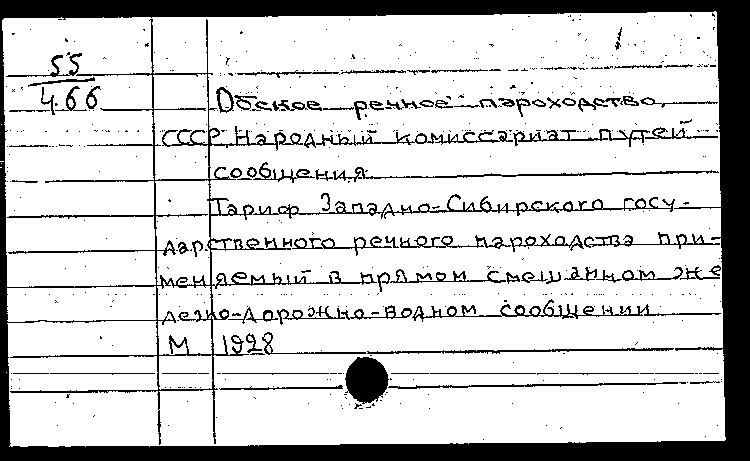 1
55
466
Обское речное пароходство.
СССР. Народный комиссариат путей
сообщения.
Тариф Западно-Сибирского госу-
дарственного речного пароходства при-
меняемый в прямом смешанном же
лезно-дорожно-водном сообщении
М 1928